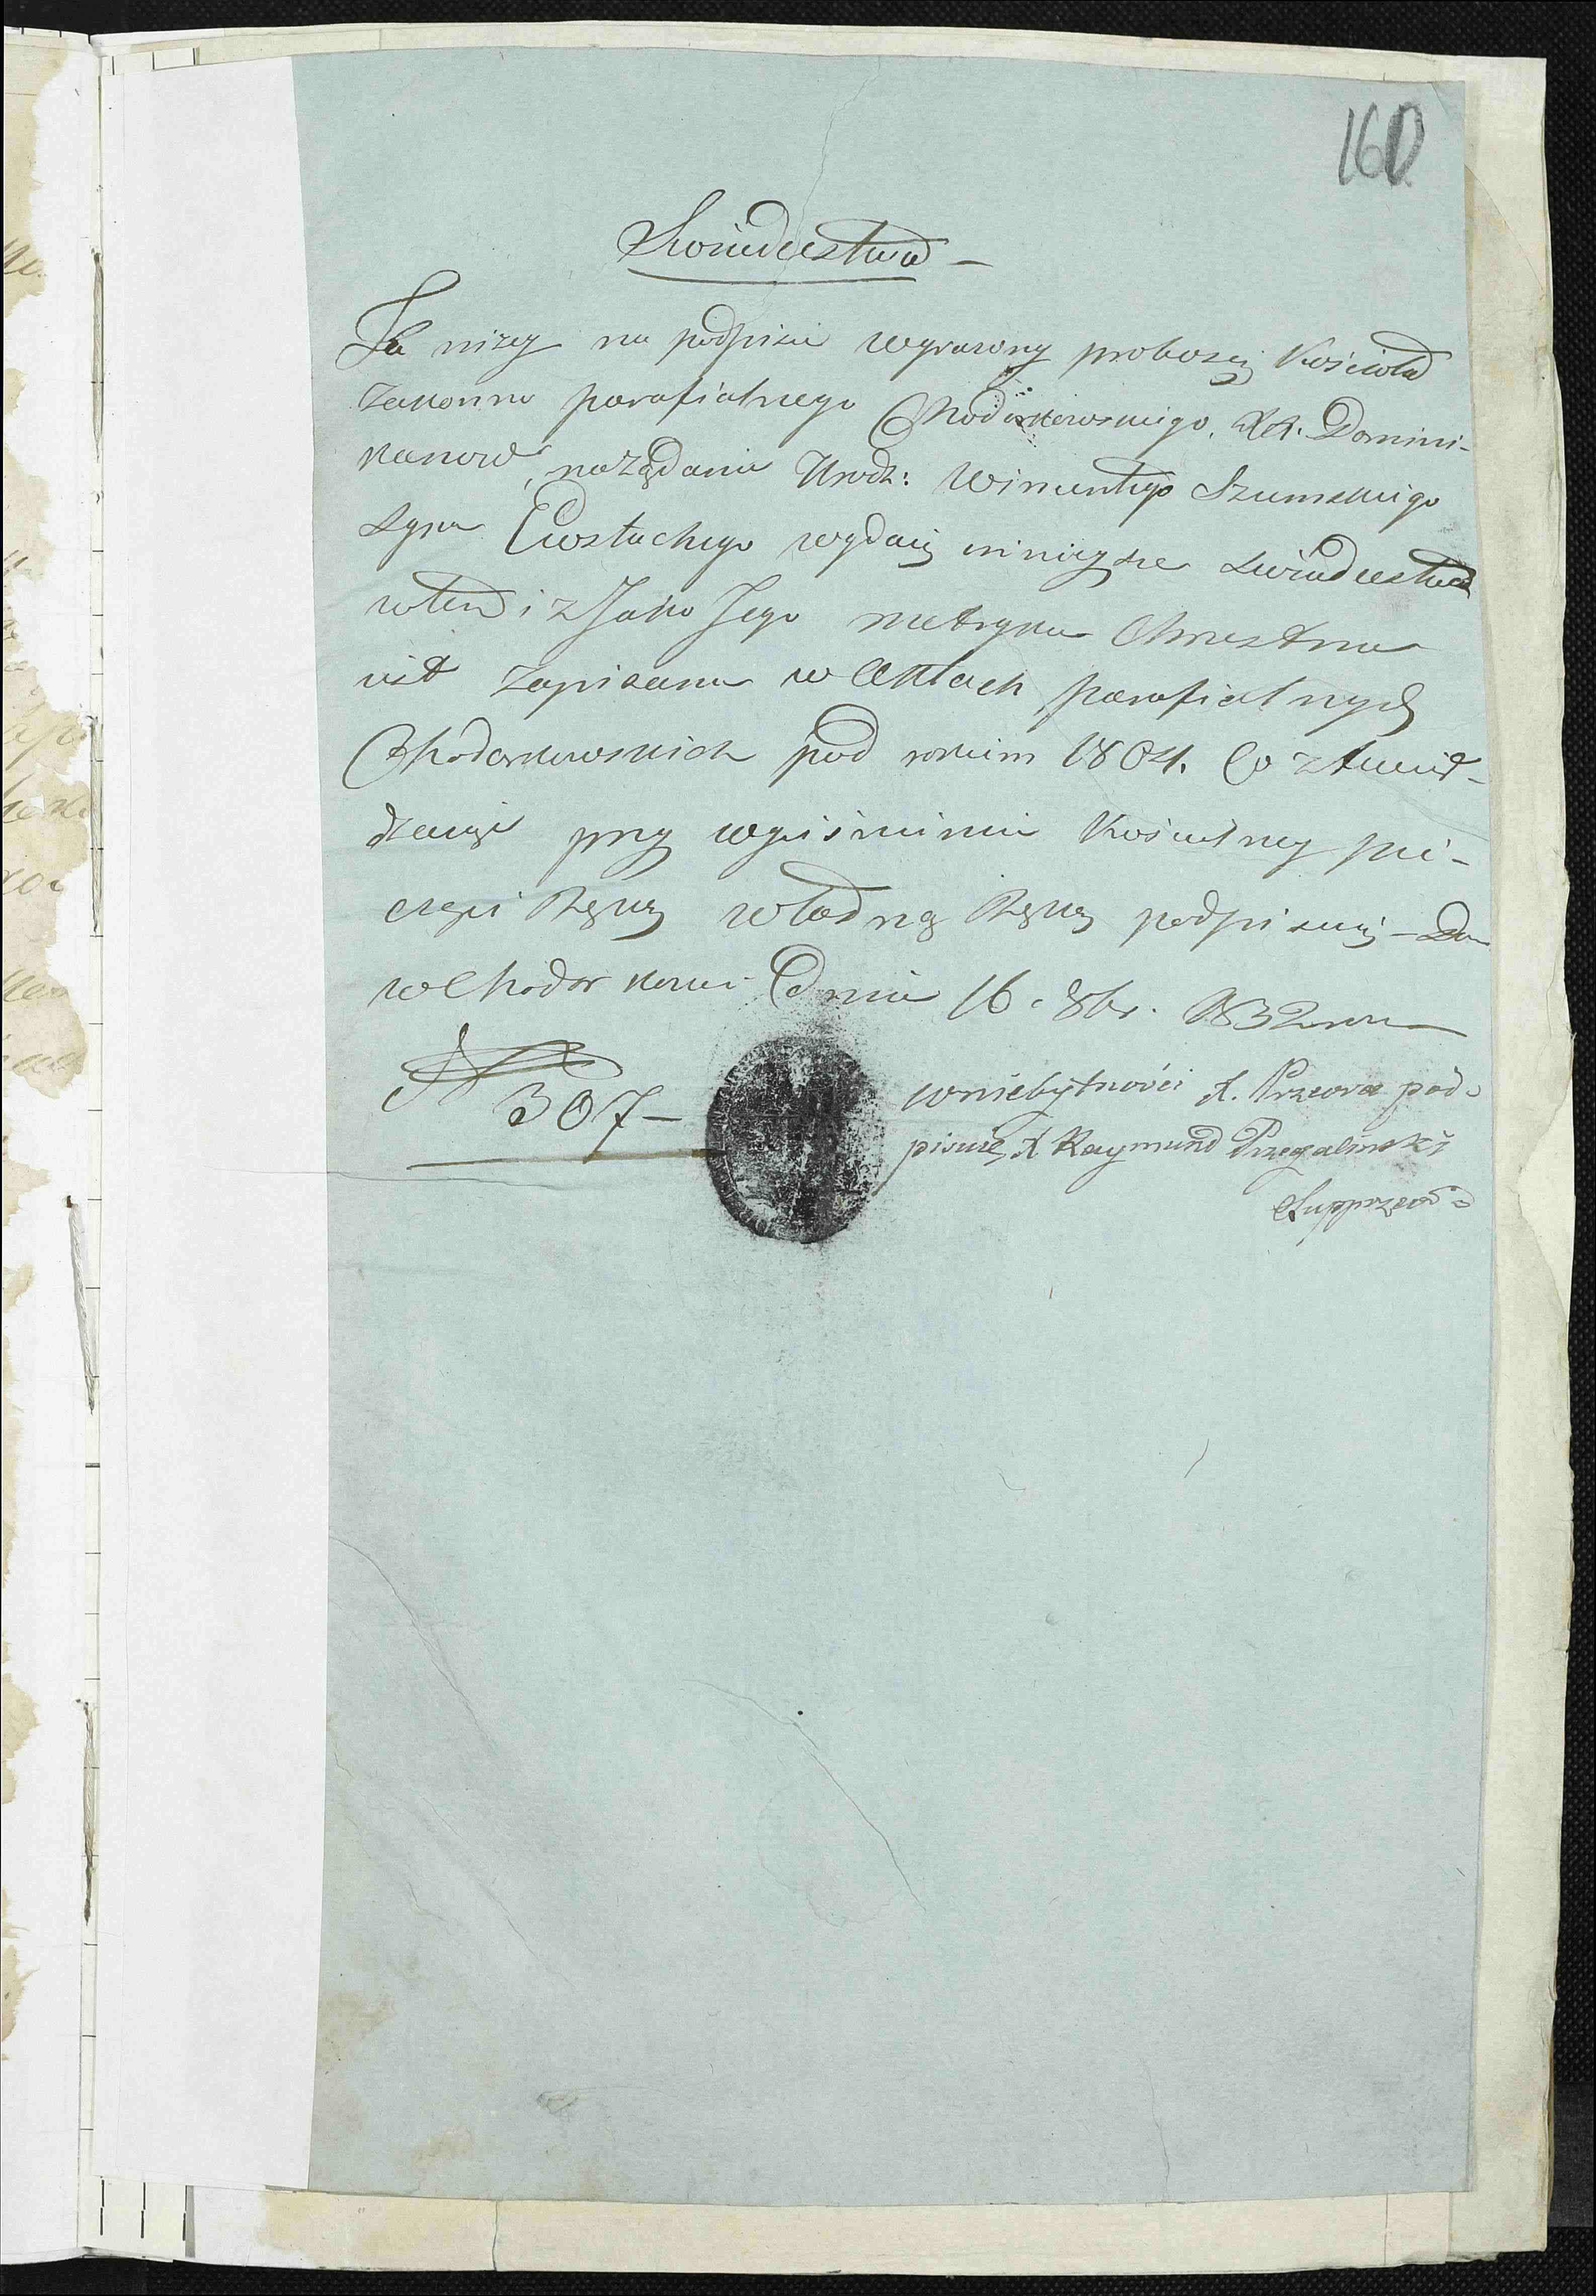 160
Swiadectwo –
Ja niżey na podpisie wyrażony proboszcz Kościoła
Zakonno parafialnego Chodorkowskiego XX. Domini-
kanow, na żądanie Urodz: Wincentego Szumskiego
Syna Eustachego wydaię ninieysze Swiadectwo
wtem iż Jako Jego metryka Chrzestna
iest zapisana w Aktach parafialnych
Chodorkowskich pod rokiem 1804. Co ztwier-
dzaiąc przy wyciśnieniu Kościelney pie-
częci Ręką własną Ręką podpisuię – Dan
w Chodorkowie Dnia 16. 8br. 1832 roku
N 307 –
w niebytności X. Przeora pod-
pisuię X Raymund Przegaliński
Supprzeor